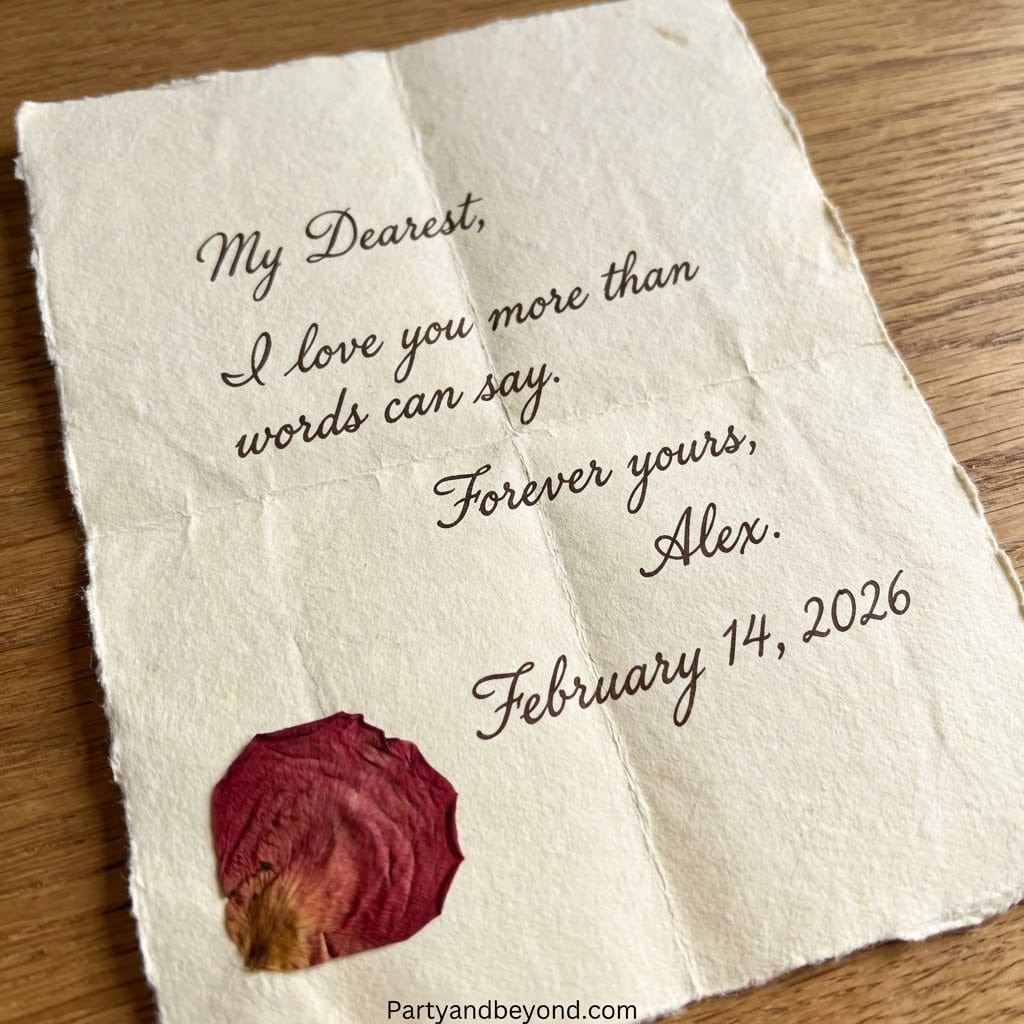 My Dearest,
I love you more than
words can say.
Forever yours,
Alex.
February 14, 2026
Partyandbeyond.com